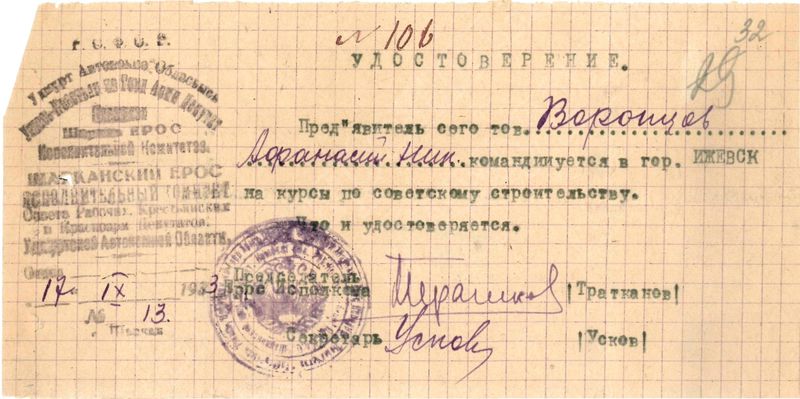 Р. С. Ф. С. Р.
Удмурт Автономно Областысь
Шаркан ЕРОС
ШАРКАНСКИЙ ЕРОС
ИСПОЛНИТЕЛЬНЫЙ КОМИТЕТ
Совета Рабочих, Крестьянских
и Красноарм Депутатов
Удмуртской Автономной Области.
17 IX 1933
№ 13.
с. Шаркан
32
№ 106
УДОСТОВЕРЕНИЕ.
Пред"явитель сего тов. Воронцов
Афанасий Ник. командииуется в гор. ИЖЕВСК
на курсы по советскому строительству.
Что и удостоверяется.
Председатель
Ерос Исполкома |Тратканов|
Секретарь Усков |Усков|